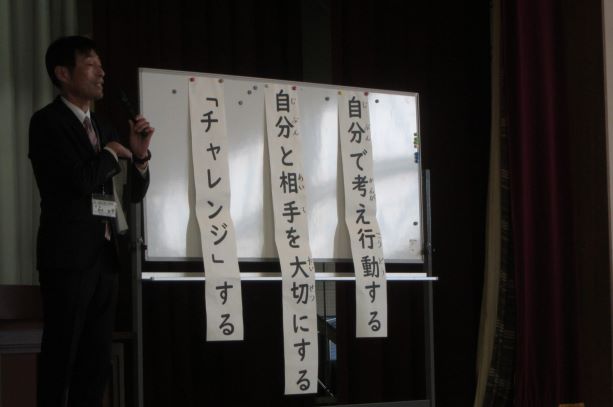 自分で考え行動する
自分と相手を大切にする
「チャレンジ」する